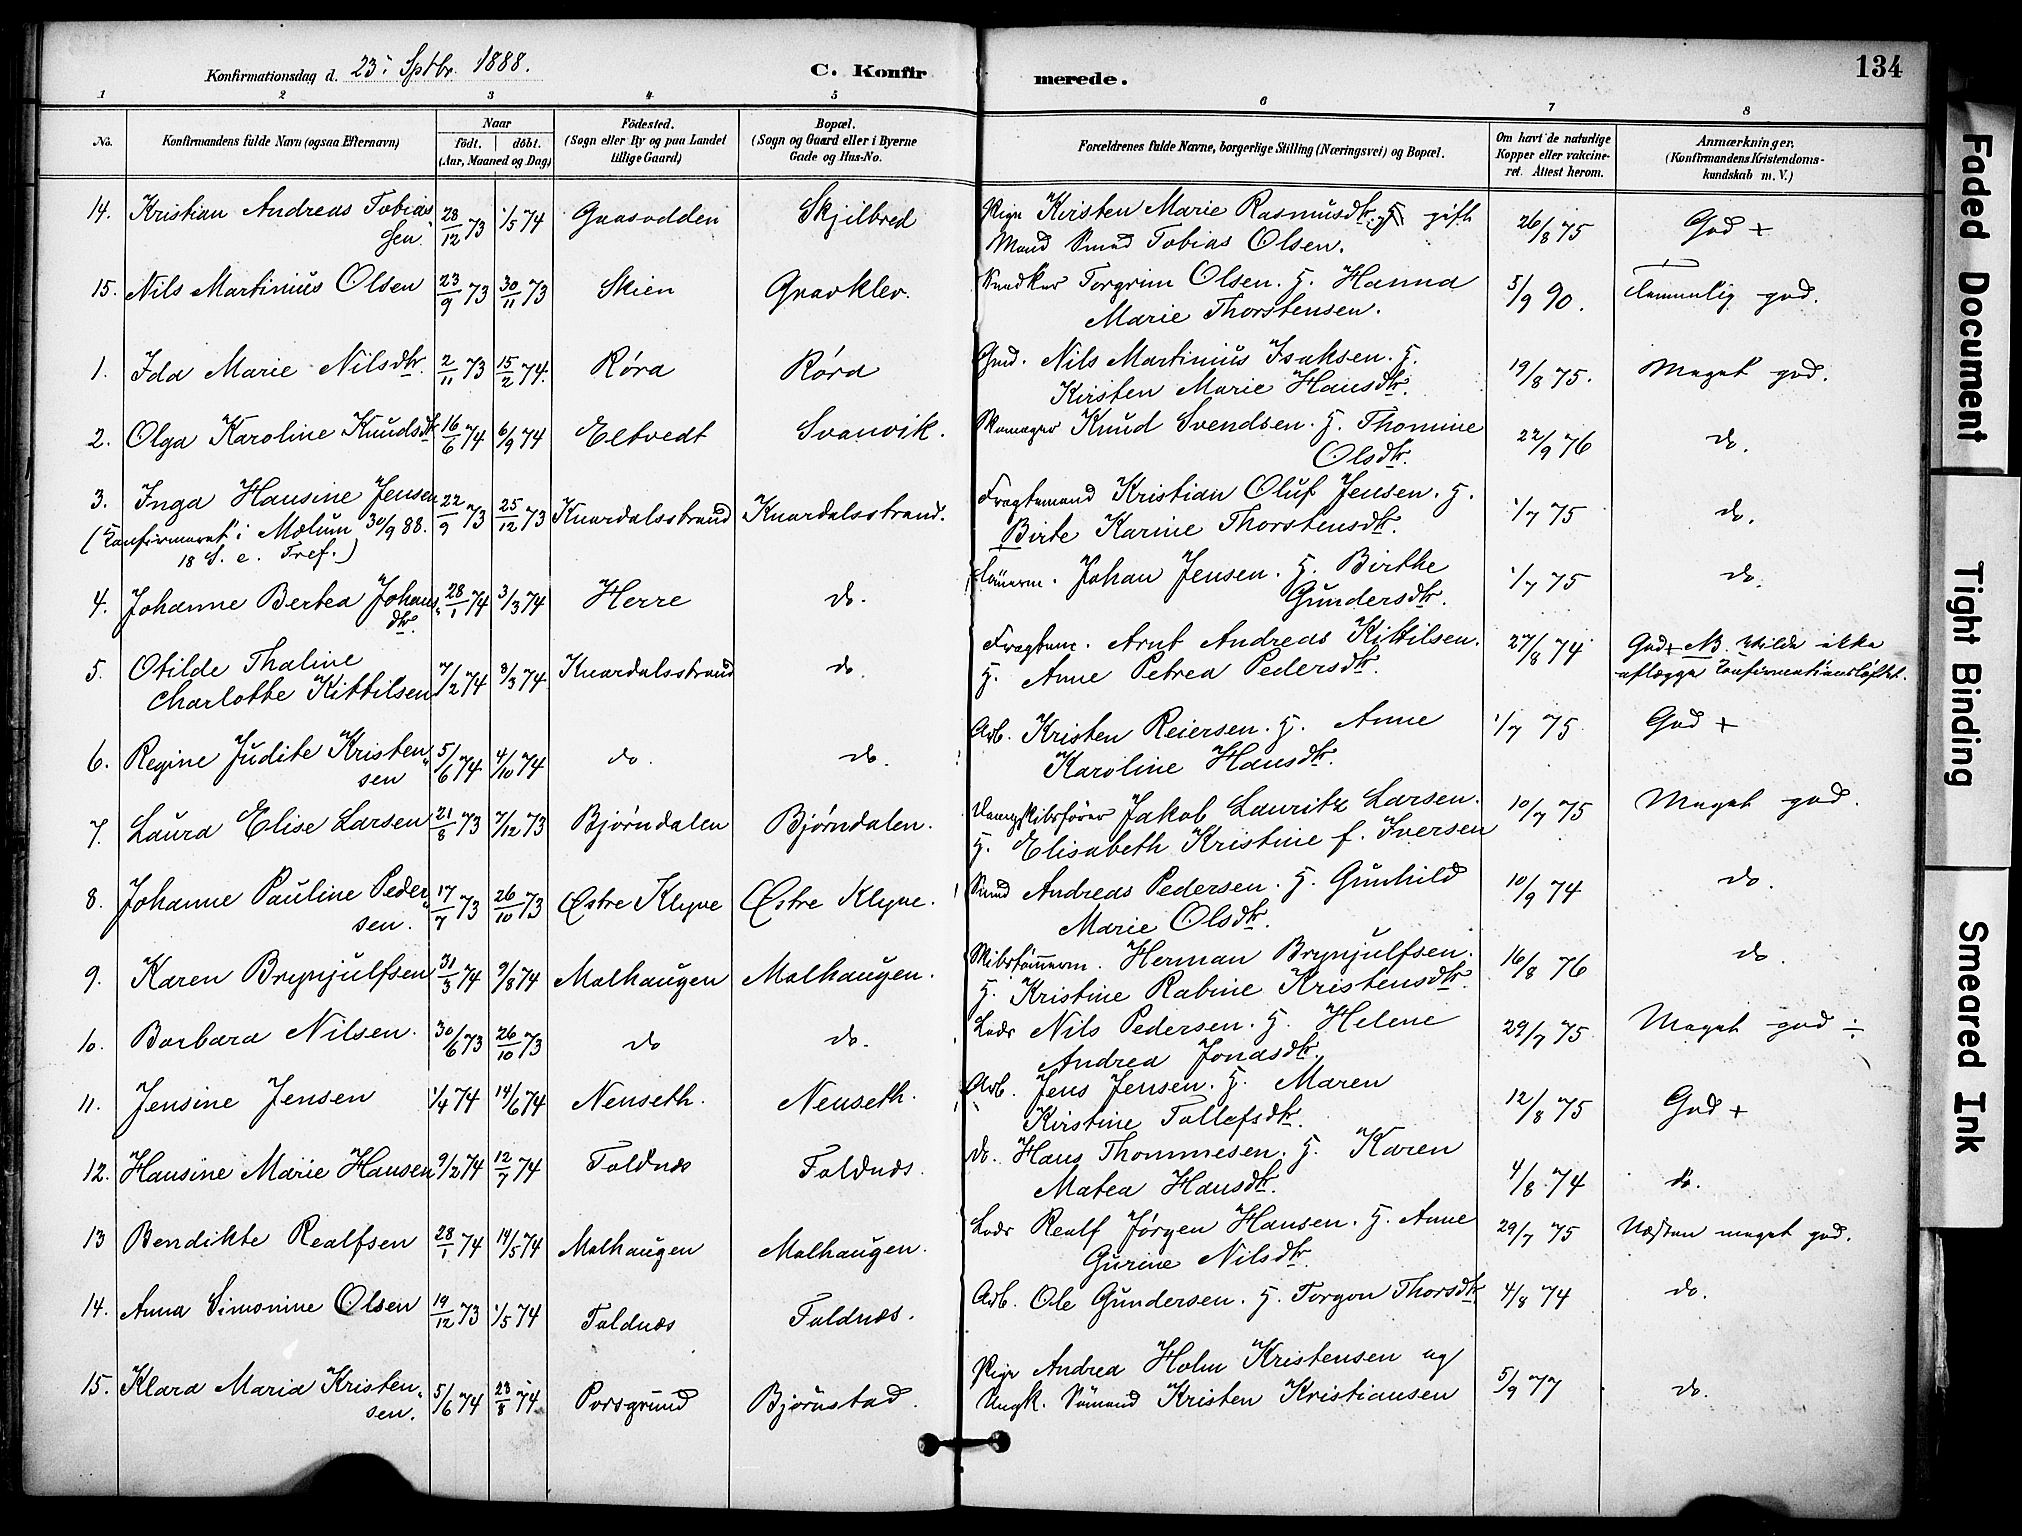 Konfirmationsdag d. 23. Sptbr. 1888.
C. Konfirmerede.
134
1 2 3 4 5 6 7 8
No.
Konfirmandens fulde Navn (ogsaa Efternavn)
Naar
født. døbt.
(Aar, Maaned og Dag)
Fødested.
(Sogn eller By og paa Landet
tillige Gaard)
Bopæl.
(Sogn og Gaard eller i Byerne
Gade og Hus-No.
Forældrenes fulde Navne, borgerlige Stilling (Næringsvei) og Bopæl.
Om havt de naturlige
Kopper eller vakcine-
ret. Attest herom.
Anmærkninger.
(Konfirmandens Kristendoms-
kundskab m. V.)
14. Kristian Andreas Tobias 28/12 73 1/5 74 Gaasodden Skjilbred Pige Kirsten Marie Rasmusdtr. og gift 26/8 75 God +
sen. Mand Smed Tobias Olsen.
15. Nils Martinius Olsen 23/9 73 30/11 73 Skien Gravklev. Snedker Torgrim Olsen. H. Hanna 5/9 90. Temmelig god.
Marie Thorstensen.
1. Ida Marie Nilsdtr. 2/11 73 15/2 74. Røra Røra Gmd. Nils Martinius Isaksen. H. 19/8 75. Meget god.
Kirsten Marie Hansdtr.
2. Olga Karoline Knudsdtr 16/6 74 6/9 74 Eltvedt Svanvik. Skomager Knud Svendsen. H. Thomine 22/9 76 do.
Olsdtr.
3. Inga Hansine Jensen 22/9 73 25/12 73 Knardalsstrand Knardalsstrand. Fragtemand Kristian Oluf Jensen. H. 1/7 75 do.
(Konfirmeret i Mælum 30/9 88. Birte Karine Thorstensdtr.
18 S. e. Tref.)
4. Johanne Bertea Johans 28/1 74 3/3 74 Herre do. Tømerm. Johan Jensen. H. Birthe 1/7 75 do.
dtr. Gundersdtr.
5. Otilde Thaline 7/2 74 8/3 74 Knardalsstrand do. Fragtem. Arnt Andreas Kittilsen. 27/8 74 God + NB. Vilde ikke
Charlotte Kittilsen H. Anne Petrea Pedersdtr. aflægge Konfirmationsløftet.
6. Regine Judite Kristen- 5/6 74 4/10 74 do. do. Arb. Kristen Reiersen. H. Anne 1/7 75 God +
sen Karoline Hansdtr.
7. Laura Elise Larsen 21/8 73 7/12 73 Bjørndalen Bjørndalen. Dampskibsfører Jakob Lauritz Larsen. 10/7 75 Meget god.
H. Elisabeth Kristine f. Iversen
8. Johanne Pauline Peder- 17/7 73 26/10 73 Østre Klyve Østre Klyve. Smed Andreas Pedersen. H. Gunhild 10/9 74 do.
sen. Marie Olsdtr.
9. Karen Brynjulfsen 31/3 74 9/8 74 Malhaugen Malhaugen. Skibstømerm. Herman Brynjulfsen. 16/8 76 do.
H. Kristine Rabine Kristensdtr.
10. Barbara Nilsen. 30/6 73 26/10 73 do do. Lods Nils Pedersen. H. Helene 29/7 75 Meget god ÷
Andrea Jonasdtr.
11. Jensine Jensen 1/4 74 14/6 74 Nenseth. Nenseth. Arb. Jens Jensen. H. Maren 12/8 75 God +
Kirstine Tollefsdtr.
12. Hansine Marie Hansen 9/2 74 12/7 74 Foldnæs Foldnæs. do. Hans Thommesen. H. Karen 4/8 74 do.
Matea Hansdtr.
13 Bendikte Realfsen 28/1 74 14/5 74 Malhaugen Malhaugen. Lods Realf Jørgen Hansen. H. Anne 29/7 75 Næsten meget god.
Gurine Nilsdtr.
14. Anna Simonine Olsen 19/12 73 1/5 74 Foldnæs Foldnæs. Arb. Ole Gundersen. H. Torgon Thorsdtr. 4/8 74 do.
15. Klara Maria Kristen- 5/6 74 23/8 74 Porsgrund Bjørnstad. Pige Andrea Holm Kristensen og 5/9 77 do.
sen. Ungk. Sømand Kristen Kristiansen
Faded Document
Tight Binding
Smeared Ink